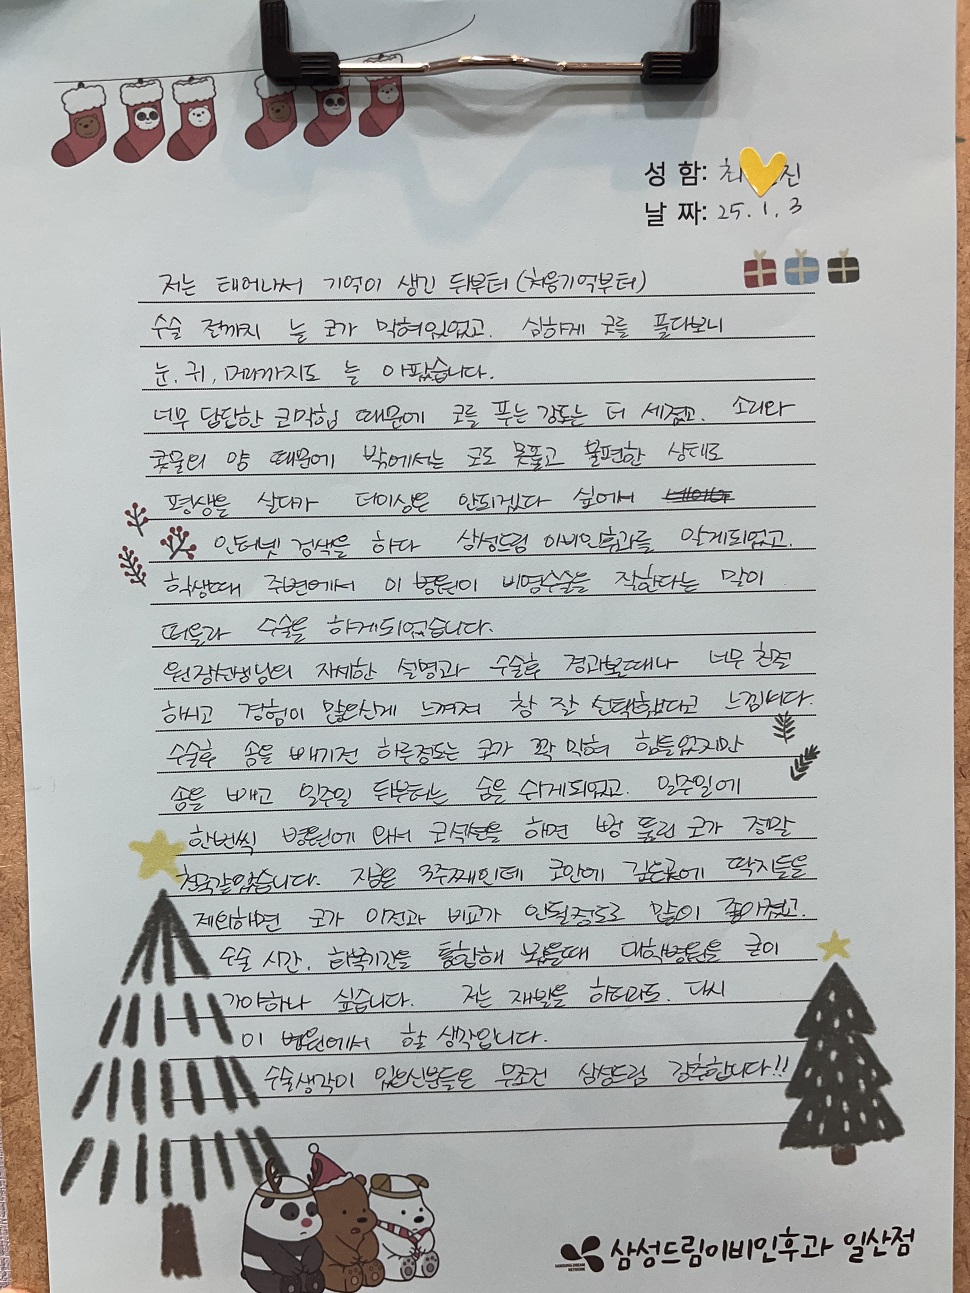 성 함: 최 진
날 짜: 25. 1. 3
저는 태어나서 기억이 생긴 뒤부터 (처음기억부터)
수술 전까지 늘 코가 막혀있었고. 심하게 코를 풀다보니
눈. 귀, 머리까지도 늘 아팠습니다.
너무 답답한 코막힘 때문에 코를 푸는 강도는 더 세졌고. 소리와
콧물의 양 때문에 밖에서는 코도 못풀고 불편한 상태로
평생을 살다가 더이상은 안되겠다 싶어서
인터넷 검색을 하다 삼성드림 이비인후과를 알게되었고.
학생때 주변에서 이 병원이 비염수술을 잘한다는 말이
떠올라 수술을 하게되었습니다.
원장선생님의 자세한 설명과 수술후 경과볼때나 너무 친절
하시고 경험이 많으신게 느껴져 참 잘 선택했다고 느낍니다.
수술후 솜을 빼기전 하루정도는 코가 꽉 막혀 힘들었지만
솜을 빼고 일주일 뒤부터는 숨을 쉬게되었고. 일주일에
한번씩 병원에 와서 코석션을 하면 뻥 뚫린 코가 정말
천국같았습니다. 지금은 3주째인데 코안에 깊은곳에 딱지들을
제외하면 코가 이전과 비교가 안될정도로 많이 좋아졌고.
수술 시간. 회복기간을 통합해 봤을때 대학병원을 굳이
가야하나 싶습니다. 저는 재발을 하더라도. 다시
이 병원에서 할 생각입니다.
수술생각이 있으신분들은 무조건 삼성드림 강추합니다!!
삼성드림이비인후과 일산점